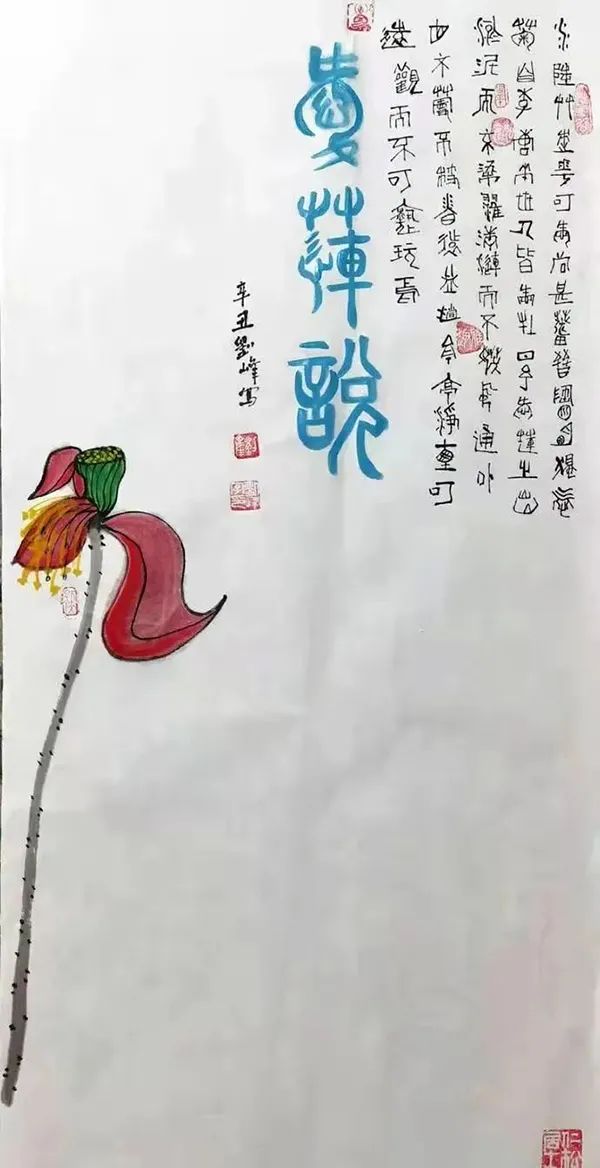 水陸艸之花可愛者甚蕃晉陶淵明獨愛
菊自李唐來世人皆愛牡丹予愛蓮之出
淤泥而不染濯清漣而不妖中通外
直不蔓不枝香遠益清亭亭淨植可
遠觀而不可褻玩焉
愛蓮說
辛丑劉峰寫
仁松居士